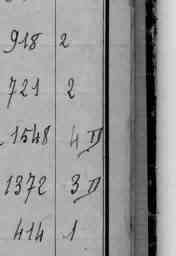 918 2
721 2
1548 4 D
1372 3 D
414 1